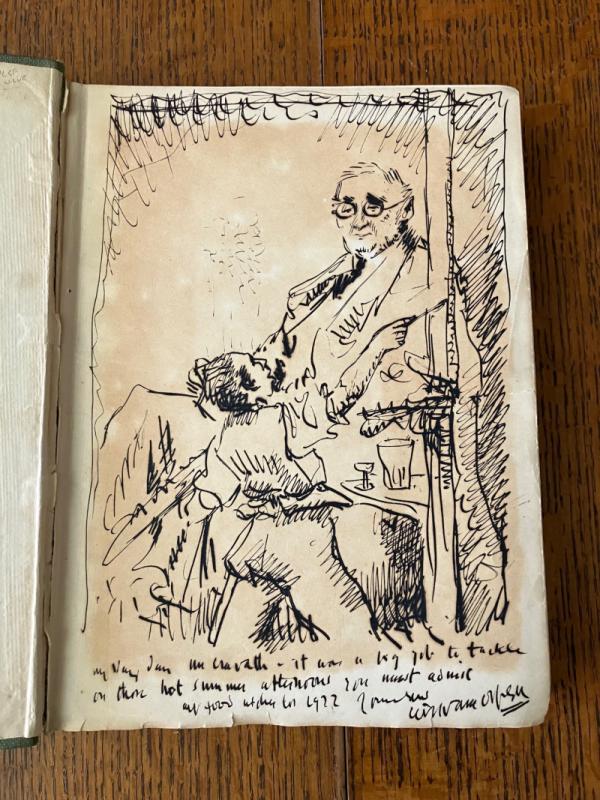 my Dear Mr Cravath - it was a big job to tackle
on those hot summer afternoons you must admit
all good wishes for 1922 Yours ever
William Orpen